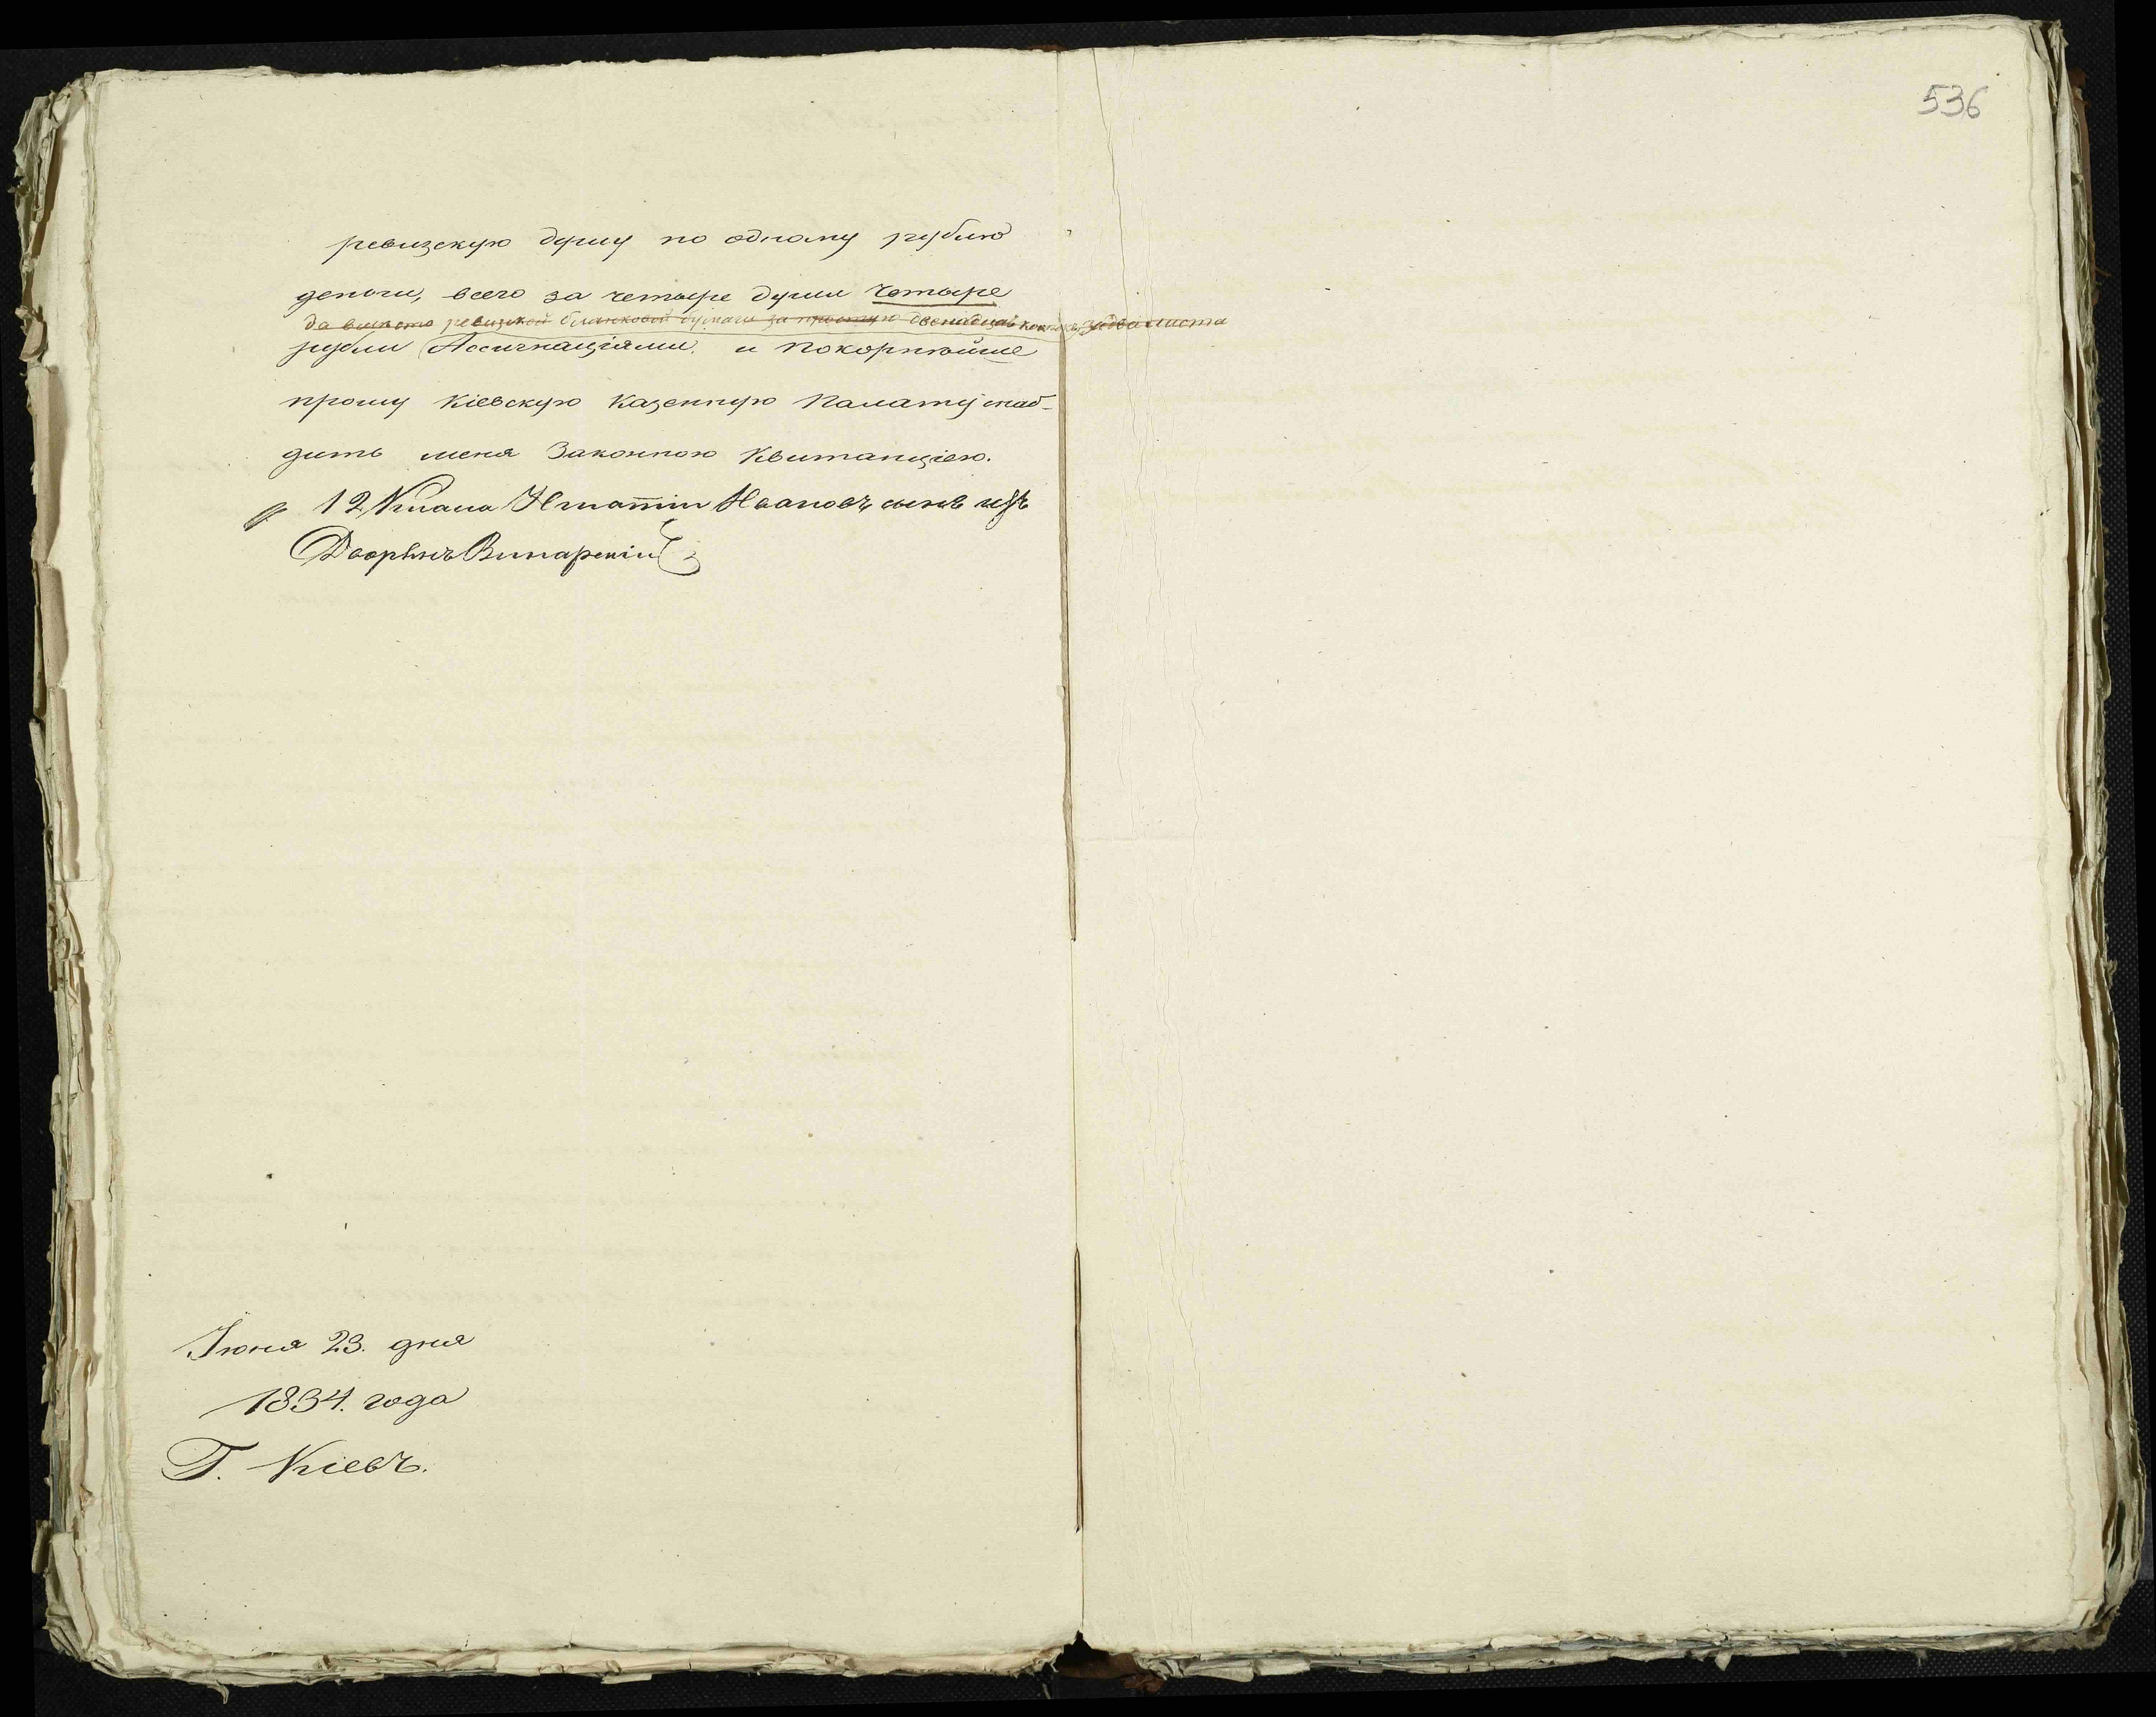 536
ревизскую душу по одному рублю
деньги, всего за четыре души четыре
да вместо ревизской бланковой бумаги за простую двенадцать копеекъ за два листа
рубли Ассигнаціями, и покорнейше
прошу Кіевскую Казенную Палату снаб-
дить меня Законною Квитанціею.
12 Класа Игнатій Ивановъ сынъ изъ
Дворянъ Винарскій
Іюня 23. дня
1834. года
Г. Кіевъ.